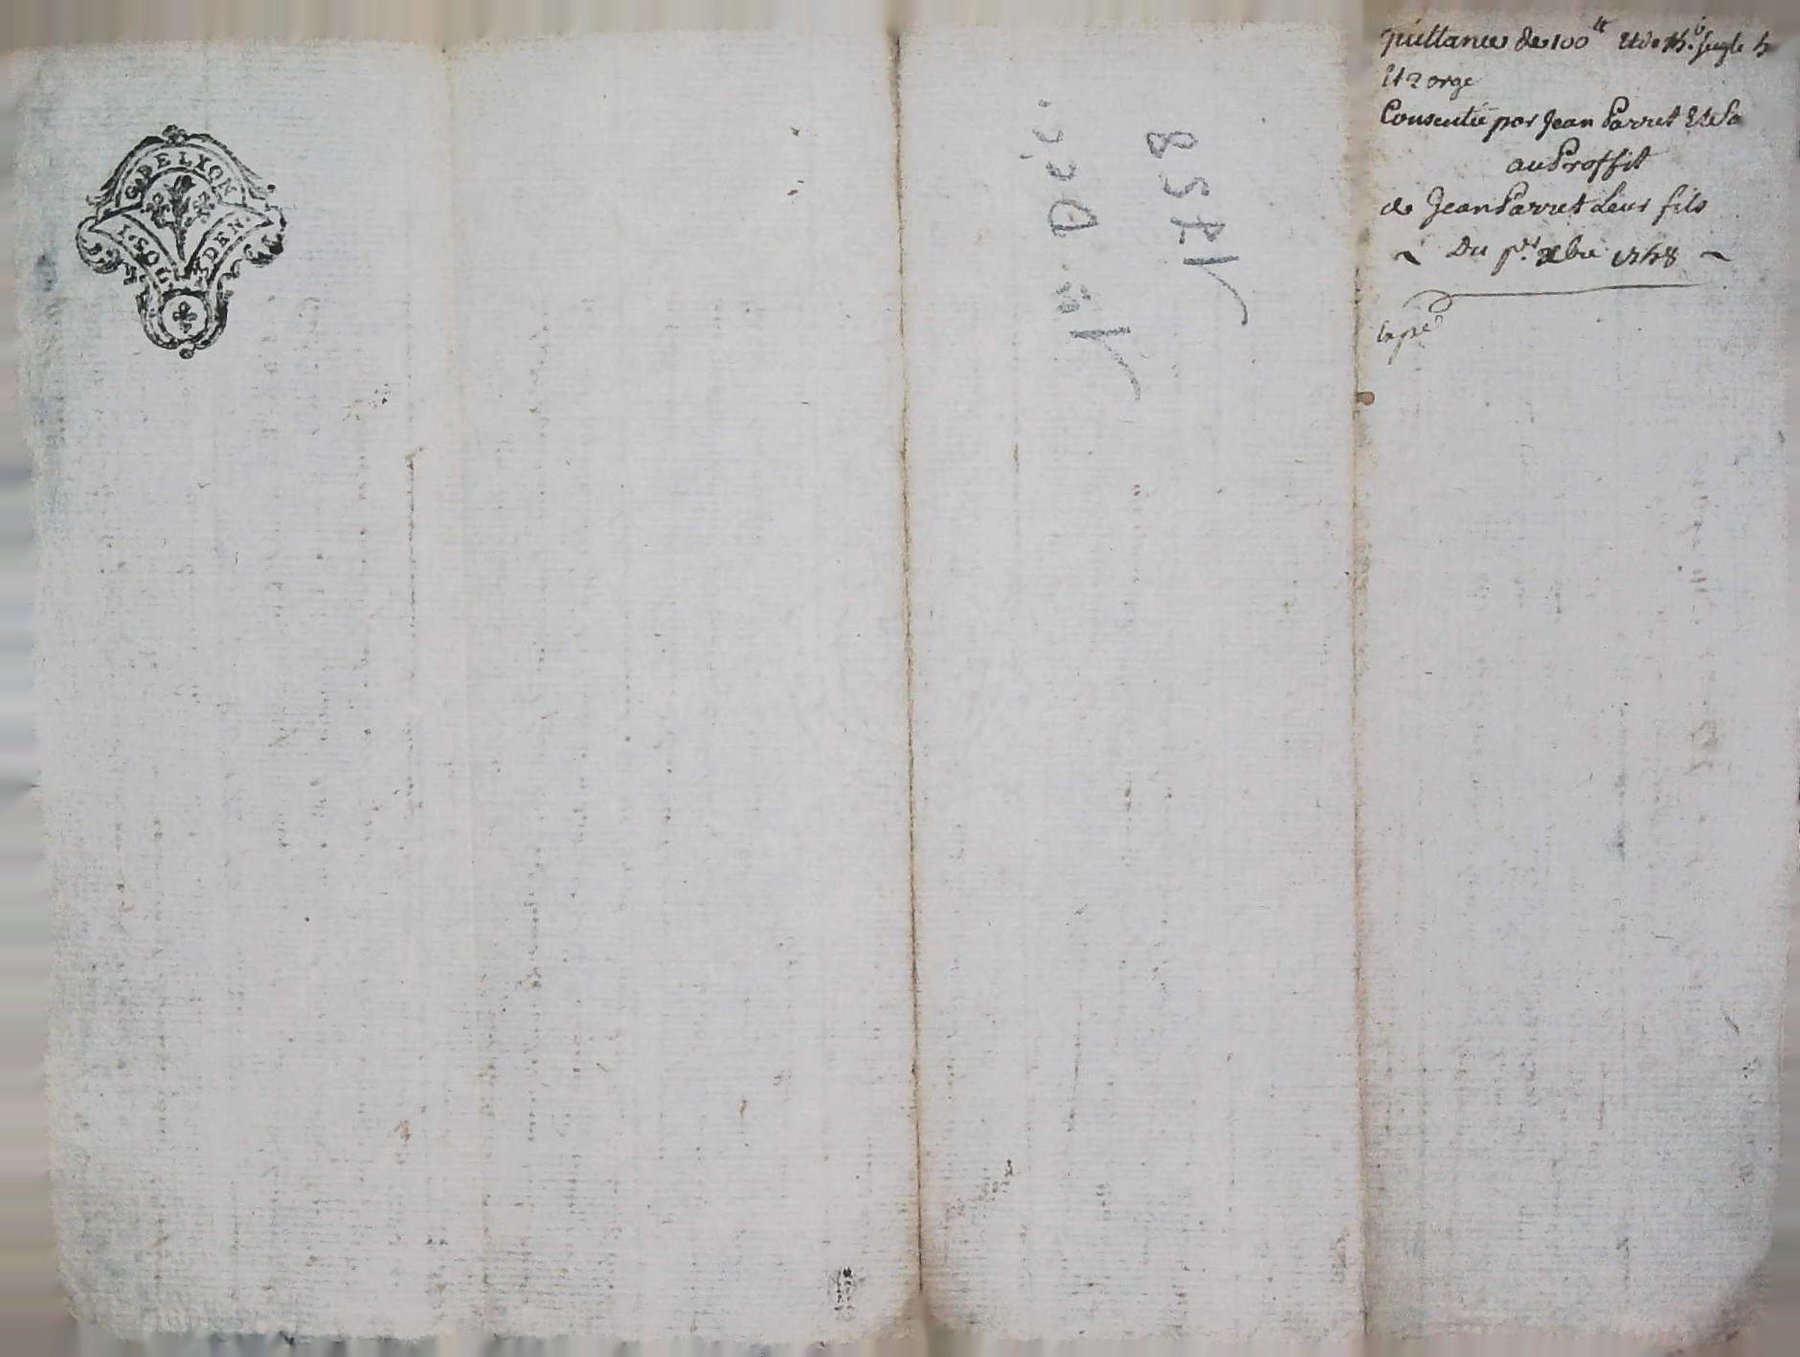 G. DE LYON
1. SOL 4 DEN.
1er Déc.
1758
quittance de 100tt Et de 15.b seigle 5
Et 2 orge
Consentie par Jean Parret Et Sa
au Proffit
de Jean Parret Leur fils
~ Du pr. xbre 1758 ~